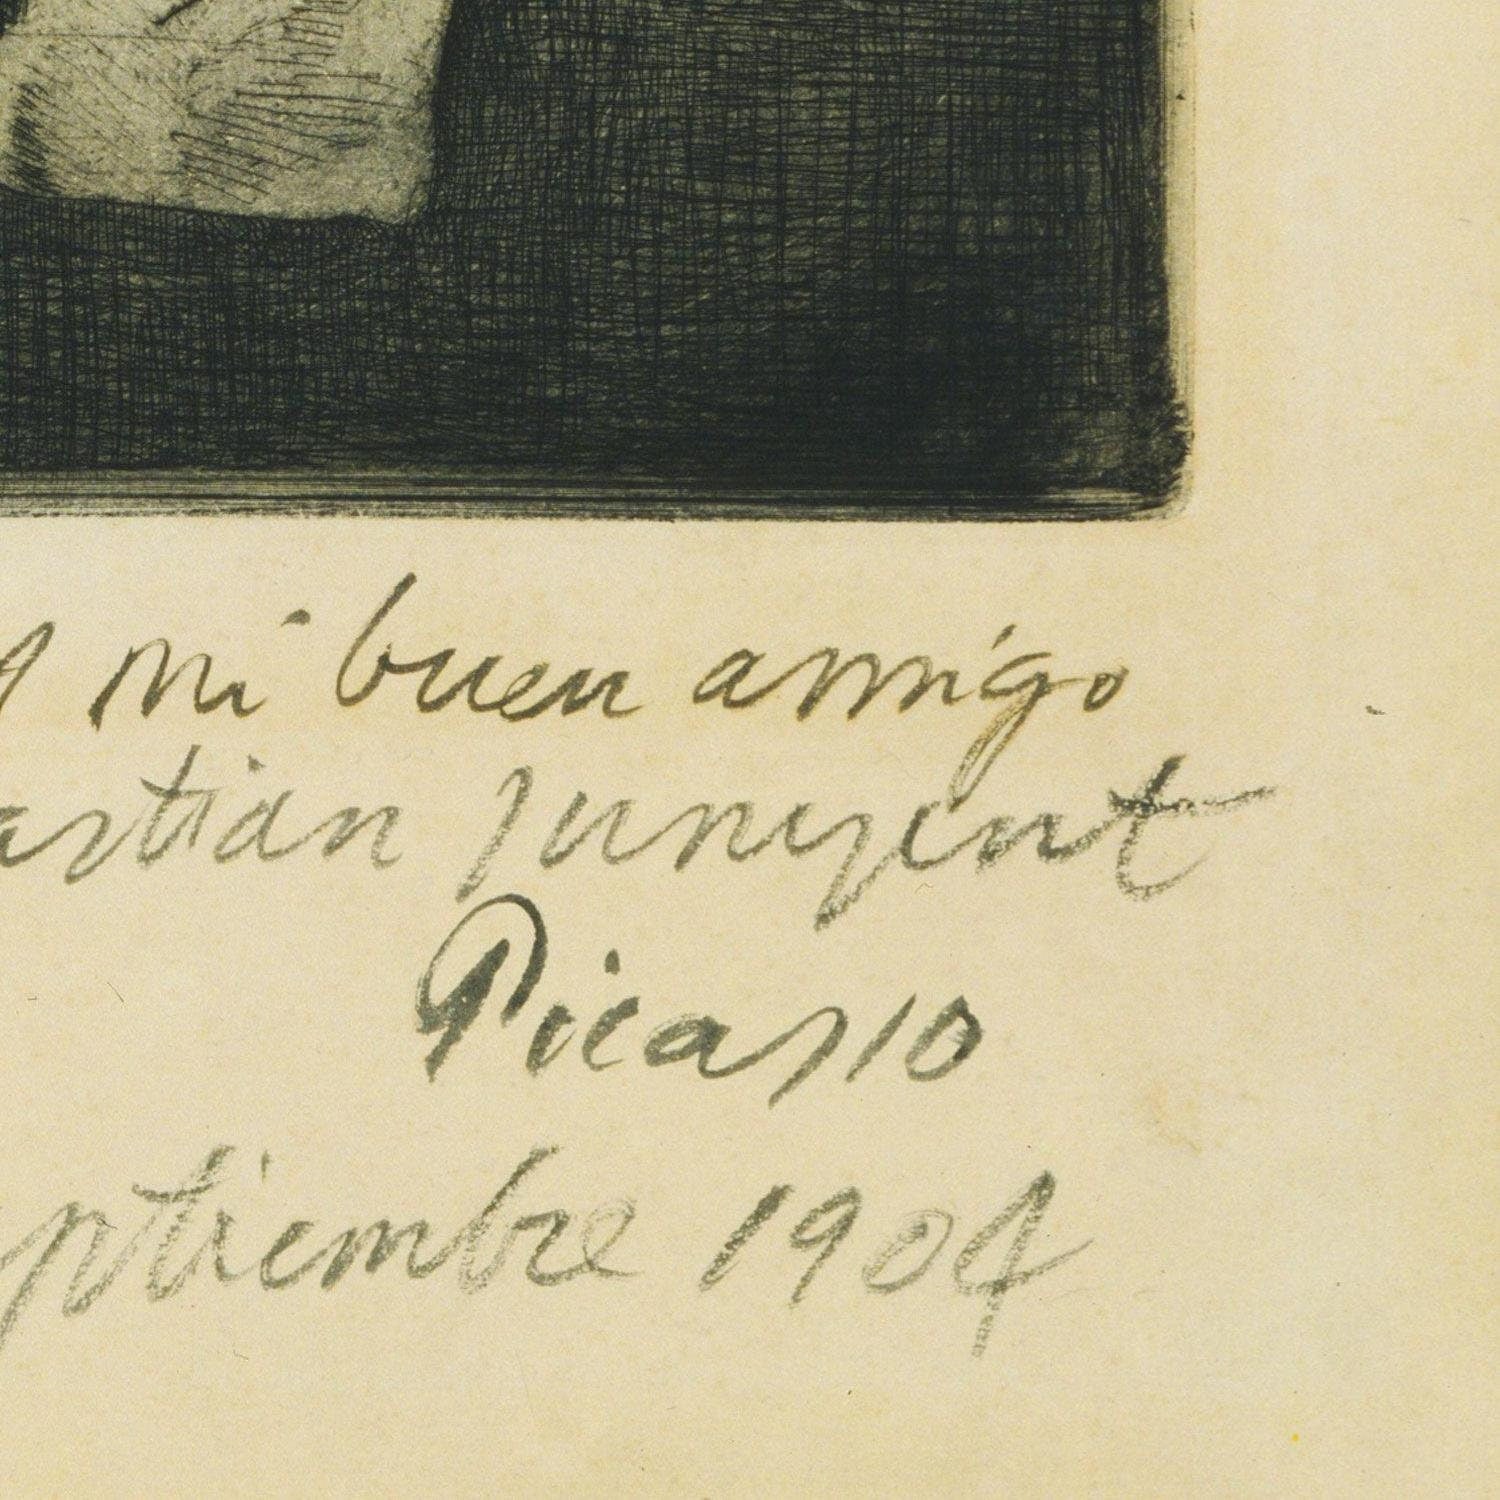 A mi buen amigo
astian Junyent
Picasso
eptiembre 1904